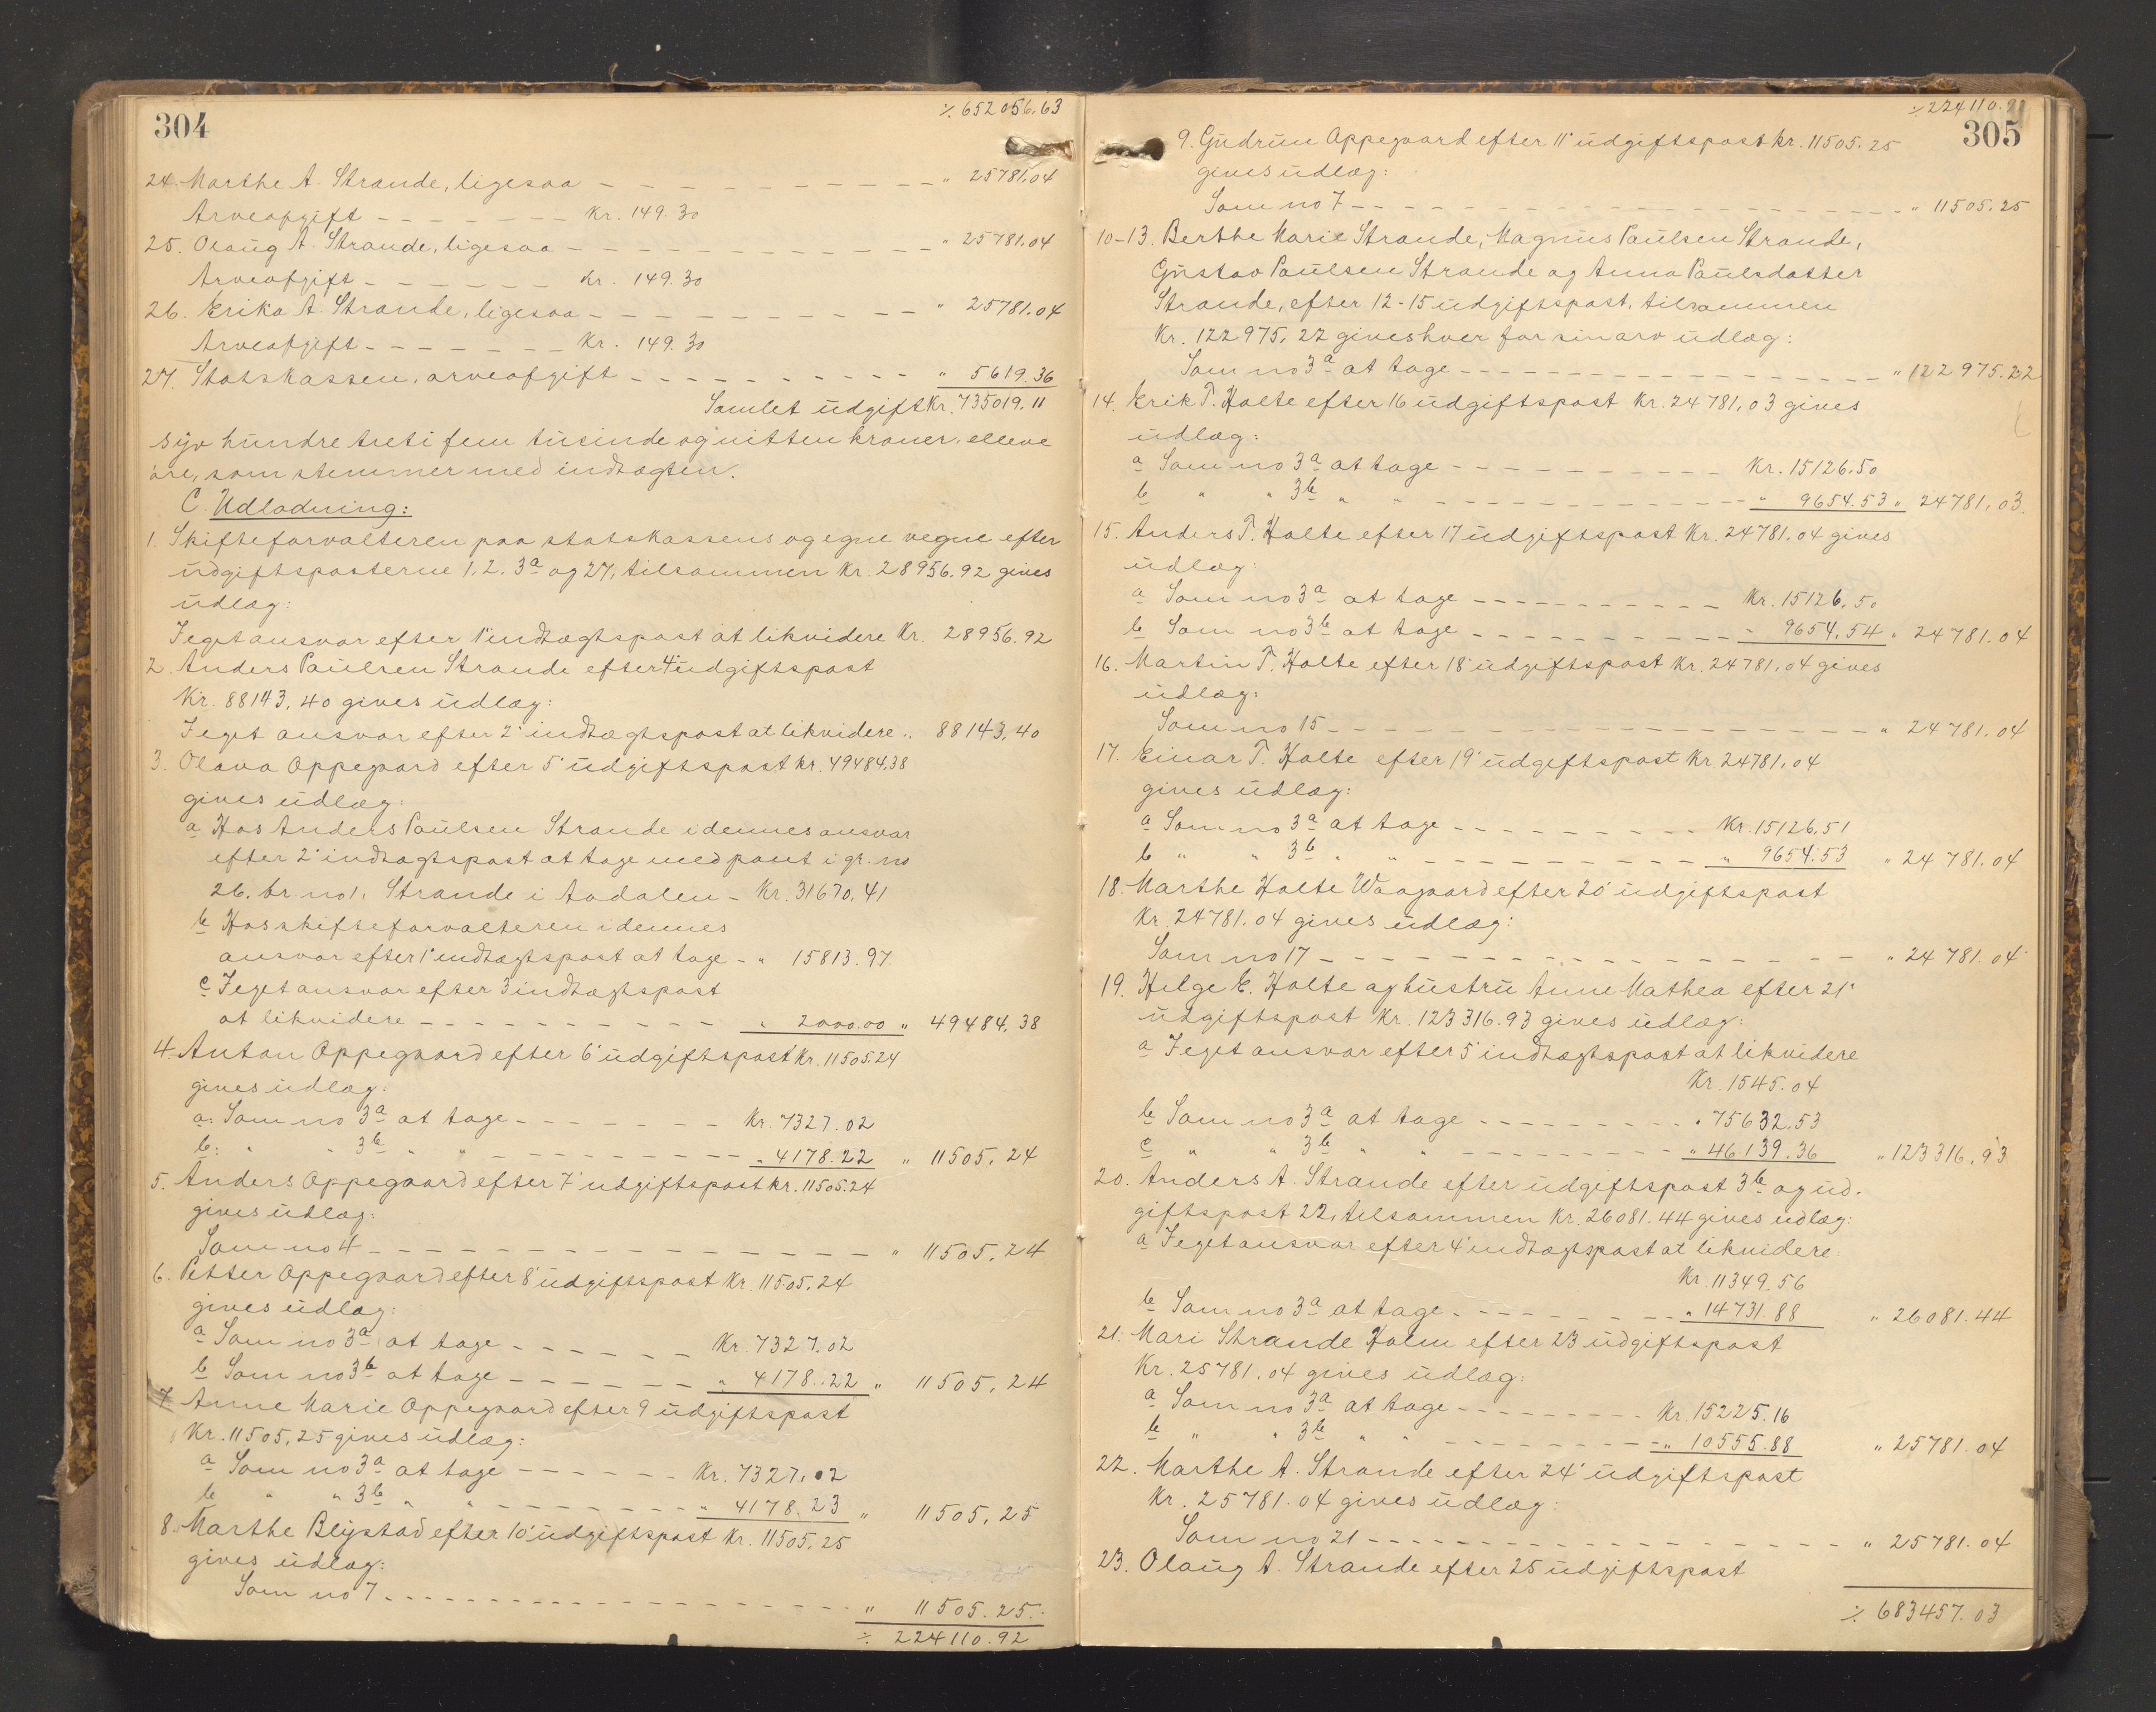 304
⁒ 652056.63
24. Marthe A. Strande, ligesaa – – – – – – – – – – – " 25781.04
Arveafgift – – – – – – – Kr. 149.30
25. Olaug A. Strande, ligesaa – – – – – – – – – – – " 25781.04
Arveafgift – – – – – – Kr. 149.30
26. Erika A. Strande, ligesaa – – – – – – – – – – " 25781.04
Arveafgift – – – – – – Kr. 149.30
27. Statskassen, arveafgift – – – – – – – – – – " 5619.36
Samlet udgift Kr. 735019.11
syv hundre treti fem tusinde og nitten kroner, elleve
øre, som stemmer med indtægten.
C. Udlodning:
1. Skifteforvalteren paa statskassens og egne vegne efter
udgiftsposterne 1, 2, 3a og 27, tilsammen Kr. 28956.92 gives
udlæg:
I eget ansvar efter 1' indtægtspost at likvidere Kr. 28956.92
2. Anders Paulsen Strande efter 4' udgiftspost
Kr. 88143,40 gives udlæg:
I eget ansvar efter 2' indtægtspost at likvidere „ 88143,40
3. Olava Oppegaard efter 5' udgiftspost kr. 49484,38
gives udlæg:
a Hos Anders Paulsen Strande i dennes ansvar
efter 2' indtægtspost at tage med pant i gr. no
26. br. no 1, Strande i Aadalen – Kr. 31670.41
b Hos skifteforvalteren i dennes
ansvar efter 1' indtægtspost at tage – " 15813.97
c I eget ansvar efter 3 indtægtspost
at likvidere – – – – – – – – – – " 2000.00 " 49484.38
4. Anton Oppegaard efter 6' udgiftspost Kr. 11505.24
gives udlæg:
a: Som no 3a at tage – – – – – – – Kr. 7327.02
b: " " 3b " " – – – – – – – – – " 4178.22 " 11505.24
5. Anders Oppegaard efter 7' udgiftspost kr. 11505.24
gives udlæg:
Som no 4 – – – – – – – – – – – – – – – – " 11505.24
6. Petter Oppegaard efter 8' udgiftspost Kr. 11505.24
gives udlæg:
a Som no 3a at tage – – – – – – Kr. 7327.02
b Som no 3b at tage – – – – – – " 4178.22 " 11505.24
7. Anne Marie Oppegaard efter 9 udgiftspost
Kr. 11505,25 gives udlæg:
a Som no 3a at tage – – – – – – Kr. 7327.02
b " " 3b " " – – – – – – – " 4178.23 " 11505.25
8. Marthe Blystad efter 10' udgiftspost Kr. 11505.25
gives udlæg:
Som no 7 – – – – – – – – – – – – – – – – " 11505.25.
⁒ 224110.92
⁒ 224110.92
305
9. Gudrun Oppegaard efter 11' udgiftspost kr. 11505.25
gives udlæg:
Som no 7 – – – – – – – – – – – – – – – – – – " 11505.25
10–13. Berthe Marie Strande, Magnus Paulsen Strande,
Gustav Paulsen Strande og Anna Paulsdatter
Strande, efter 12–15 udgiftspost, tilsammen
Kr. 122975,22 gives hver for sin arv udlæg:
Som no 3a at tage – – – – – – – – – – – – – – – – " 122975.22
14. Erik T. Holte efter 16 udgiftspost Kr. 24781,03 gives
udlæg:
a Som no 3a at tage – – – – – – – – – – Kr. 15126.50
b " " 3b " " – – – – – – – – – – – " 9654.53 " 24781,03.
15. Anders T. Holte efter 17 udgiftspost Kr. 24781.04 gives
udlæg:
a Som no 3a at tage – – – – – – – – – – Kr. 15126.50
b Som no 3b at tage – – – – – – – – – – – 9654.54 " 24781.04
16. Martin T. Holte efter 18' udgiftspost Kr. 24781,04 gives
udlæg:
Som no 15 – – – – – – – – – – – – – – – – – – – " 24781.04
17. Einar T. Holte efter 19' udgiftspost Kr 24781.04
gives udlæg:
a Som no 3a at tage – – – – – – – – – Kr. 15126.51
b " " 3b " " – – – – – – – – – – " 9654.53 " 24781.04
18. Marthe Holte Waagaard efter 20' udgiftspost
Kr. 24781.04 gives udlæg:
Som no 17 – – – – – – – – – – – – – – – – – " 24781.04
19. Helge E. Holte og hustru Anne Mathea efter 21'
udgiftspost Kr. 123316.93 gives udlæg:
a I eget ansvar efter 5' indtægtspost at likvidere
Kr. 1545.04
b Som no 3a at tage – – – – – – – – – " 75632.53
c " " 3b " " – – – – – – – – – " 46139.36 " 123316.93
20. Anders A. Strande efter udgiftspost 3b og ud-
giftspost 22, tilsammen Kr. 26081.44 gives udlæg:
a I eget ansvar efter 4' indtægtspost at likvidere
Kr. 11349.56
b Som no 3a at tage – – – – – – – – " 14731.88 " 26081.44
21. Mari Strande Holm efter 23 udgiftspost
Kr. 25781.04 gives udlæg:
a Som no 3a at tage – – – – – – – – Kr. 15225.16
b " " 3b " " – – – – – – – – " 10555.88 " 25781.04
22. Marthe A. Strande efter 24' udgiftspost
Kr. 25781.04 gives udlæg:
Som no 21 – – – – – – – – – – – – – – – – – " 25781.04
23. Olaug A. Strande efter 25 udgiftspost
⁒ 683457.03